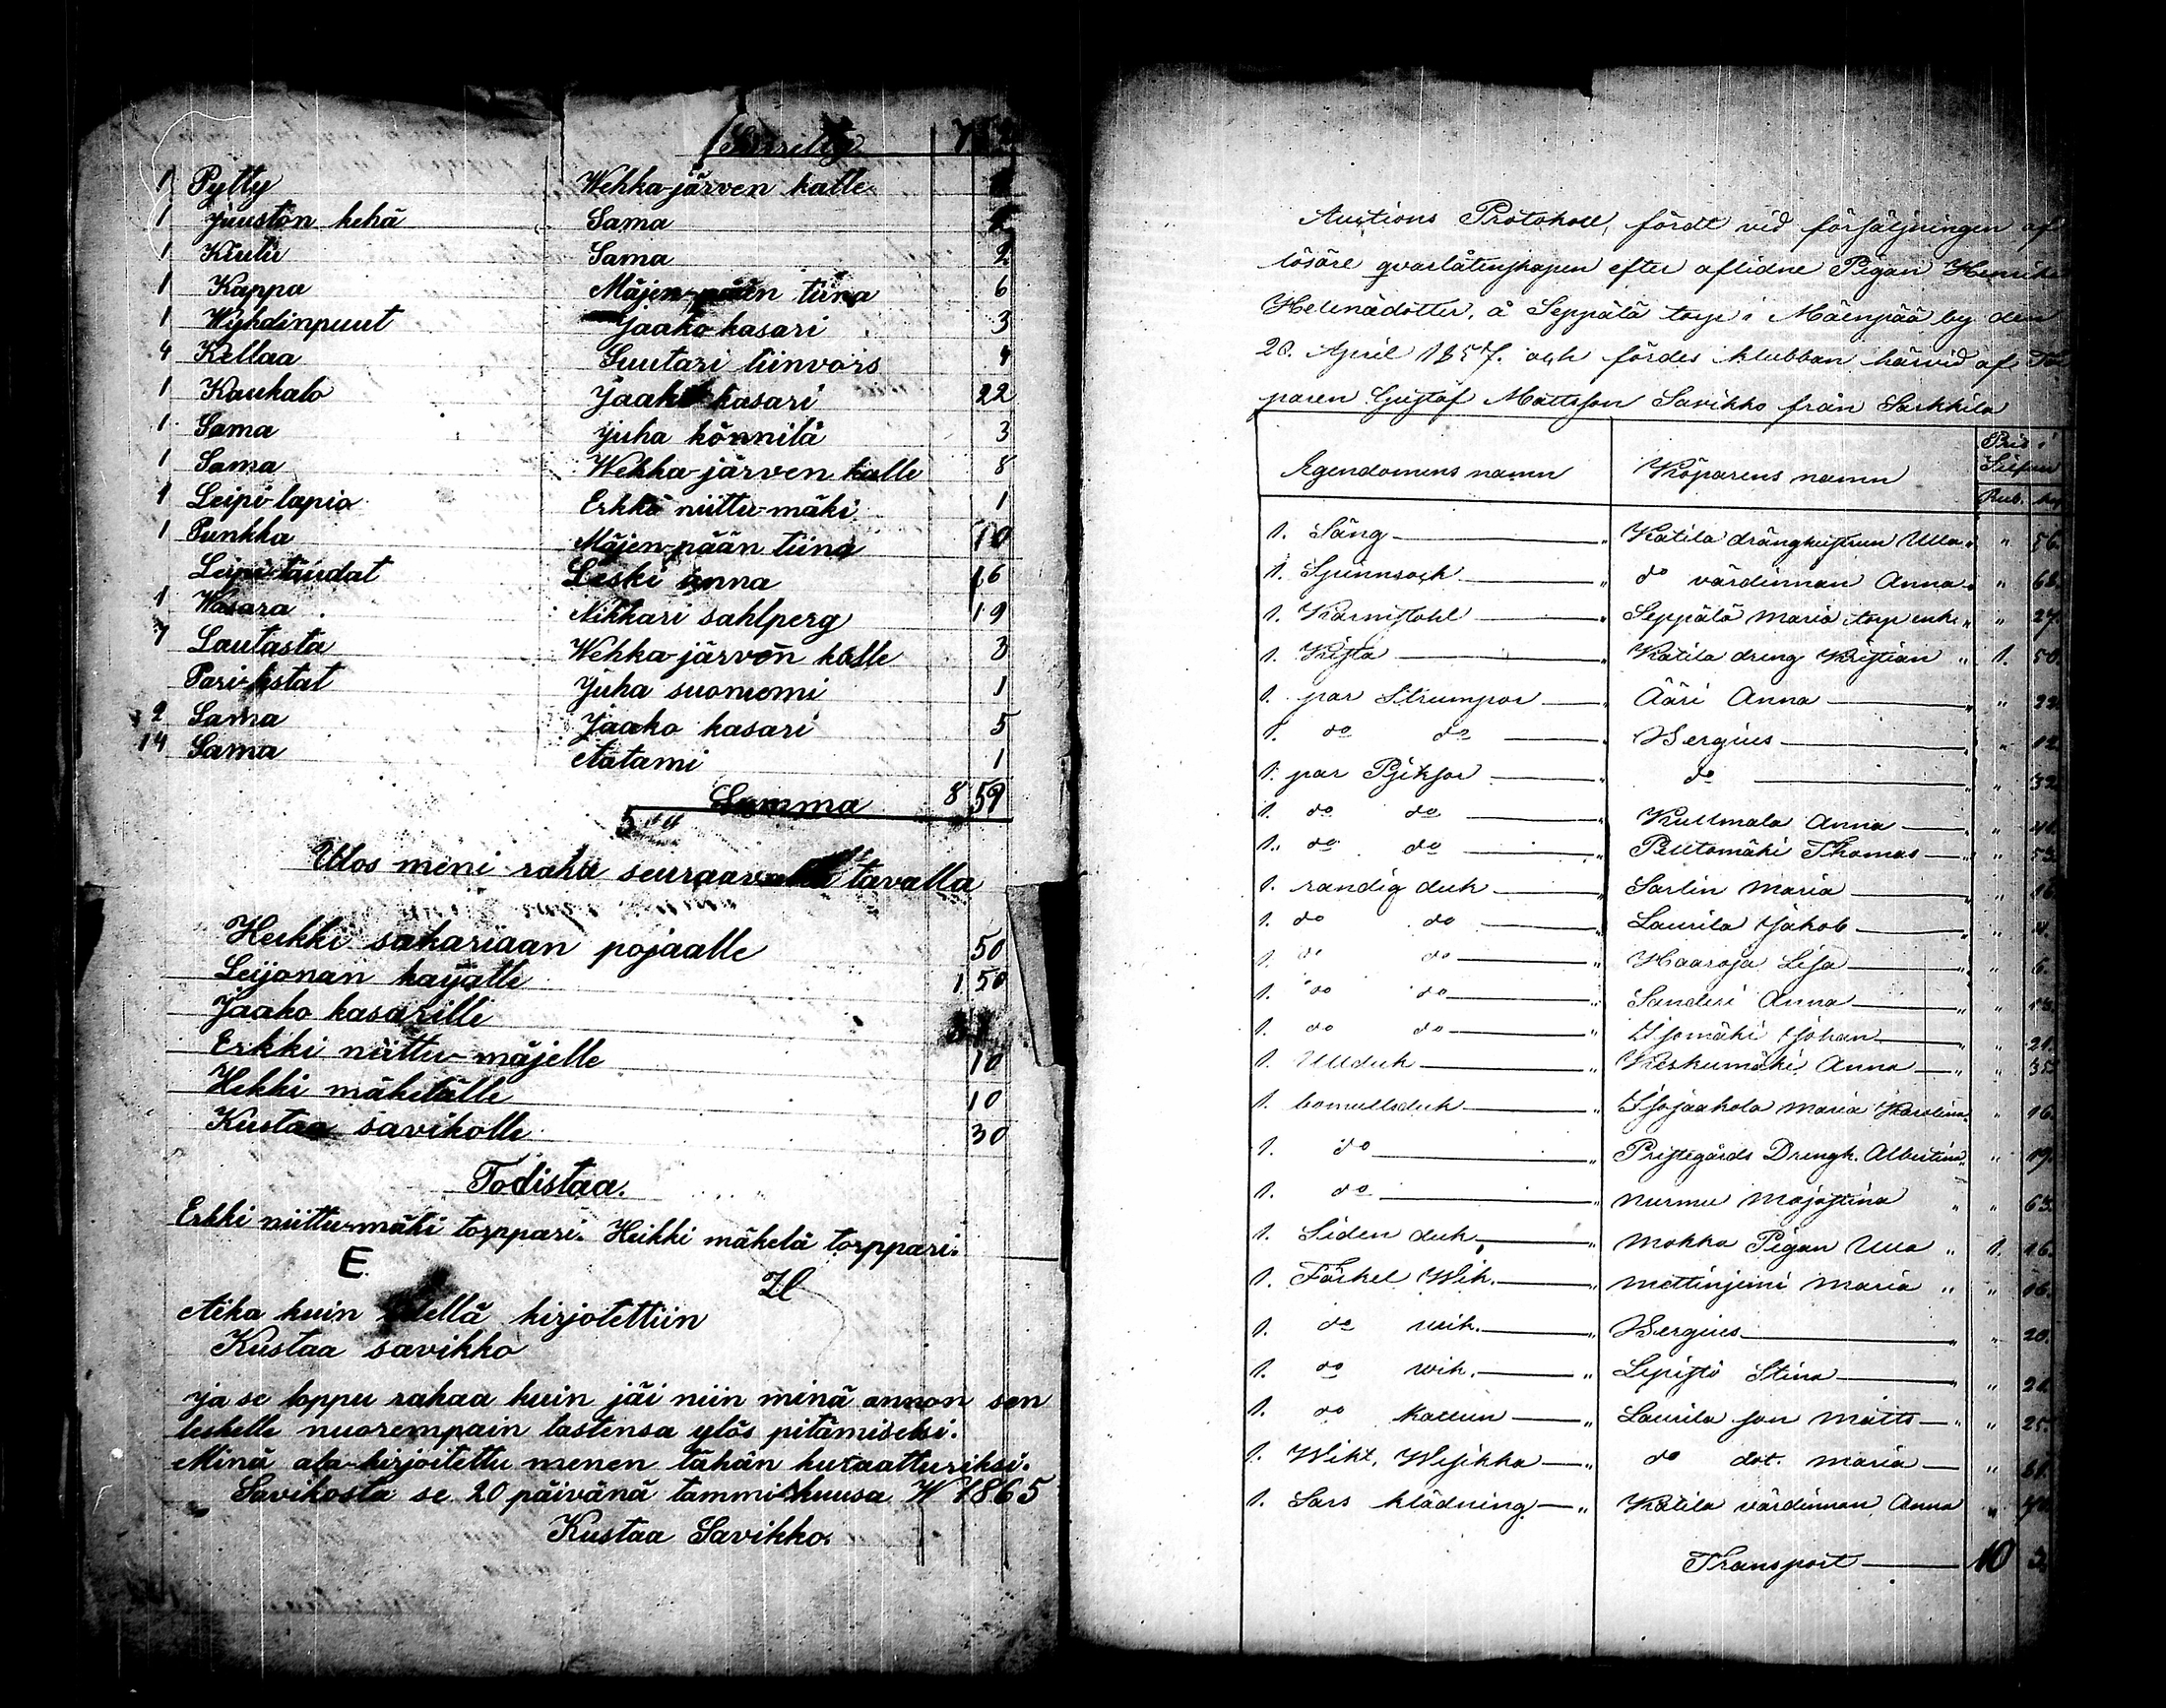 Siirretty 7
1 Pytty Wehka-järven kalle
1 Juuston kehä Sama
1 Kiulu Sama 2
1 Kappa Mäjen-pään tiina 6
1 Wyhdinpuut Jaako kasari 3
4 Kellaa Suutari tiinvors 4
1 Kaukalo Jaako kasari 22
1 Sama Juha könnilä 3
1 Sama Wehka-järven kalle 8
1 Leipi-lapio Erkko niittu-mäki 1
1 Punkka Mäjen-pään tiina 10
Leipi-taudat Leski anna 16
1 Wasara Nikkari sahlperg 19
7 Lautasta Wehka-järven kalle 3
Pari-kstat Juha suoniemi 1
2 Sama Jaako kasari 5
14 Sama Aatami 1
Summa 8 59
Ulos meni raha seuraavalla tavalla
Heikki sakariaan pojaalle 50
Leijonan kaijalle 1 50
Jaako kasarille
Erkki niittu-mäjelle 10
Hekki mäkelälle 10
Kustaa savikolle 30
Todistaa.
Erkki niittu-mäki torppari. Heikki mäkelä torppari.
E. H
Aika kuin edellä kirjotettiin
Kustaa savikko
ja se loppu rahaa kuin jäi niin minä annon sen
leskelle nuorempain lastensa ylös pitämiseksi.
Minä ala-kirjoitettu menen tähän huraatturiksi.
Savikosta se 20 päivänä tammikuusa W 1865
Kustaa Savikko.
Auctions Protokoll, fördt vid försäljningen af
lösöre qvarlåtenskapen efter aflidne Pigan Henrika
Helenadotter, å Seppälä torp i Mäenpää by den
20. April 1857. och fördes klubban härvid af Tor
paren Gustaf Mattsson Savikko från Sarkkila
Egendomens namn Köparens namn Pris i Silfver
Rub. kop
1. Säng Katila dränghustrun Ulla " 56.
1. Spinnrock do värdinnan Anna " 68.
1. Karmstohl Seppälä Maria torp enk. " 27.
1. Kista Katila dreng Kristian 1. 50.
1. par Strumpor Ääri Anna " 22.
1. do do Bergius " 12.
1. par Pjiksor do " 32
1. do do Kullmala Anna "
1. do do Puutomäki Thomas " 53.
1. randig duk Sarlin Maria " 16
1. do do Laurila Jakob " 4.
1. do do Haaroja Lisa " 6.
1. do do Sanderi Anna " 13.
1. do do Isomäki Johan " 21.
1. Ullduk Keskumäki Anna " 35.
1. bomullsduk Isojaakola Maria Karolina " 16.
1. do Prestegårds Drengh. Albertina " 19.
1. do Nurmu Majastina " 63.
1. Siden duk Mokka Pigan Ulla 1. 16.
1. Förkel Wik. Mettinjemi Maria " 16.
1. do wik. Bergius " 20.
1. do wik. Lepistö Stina "
1. do Kattun Laurila son Matts " 25.
1. Wikt. Wesikka do dot. Maria "
1. Sars klädning Katila värdinnan Anna "
Transport 10